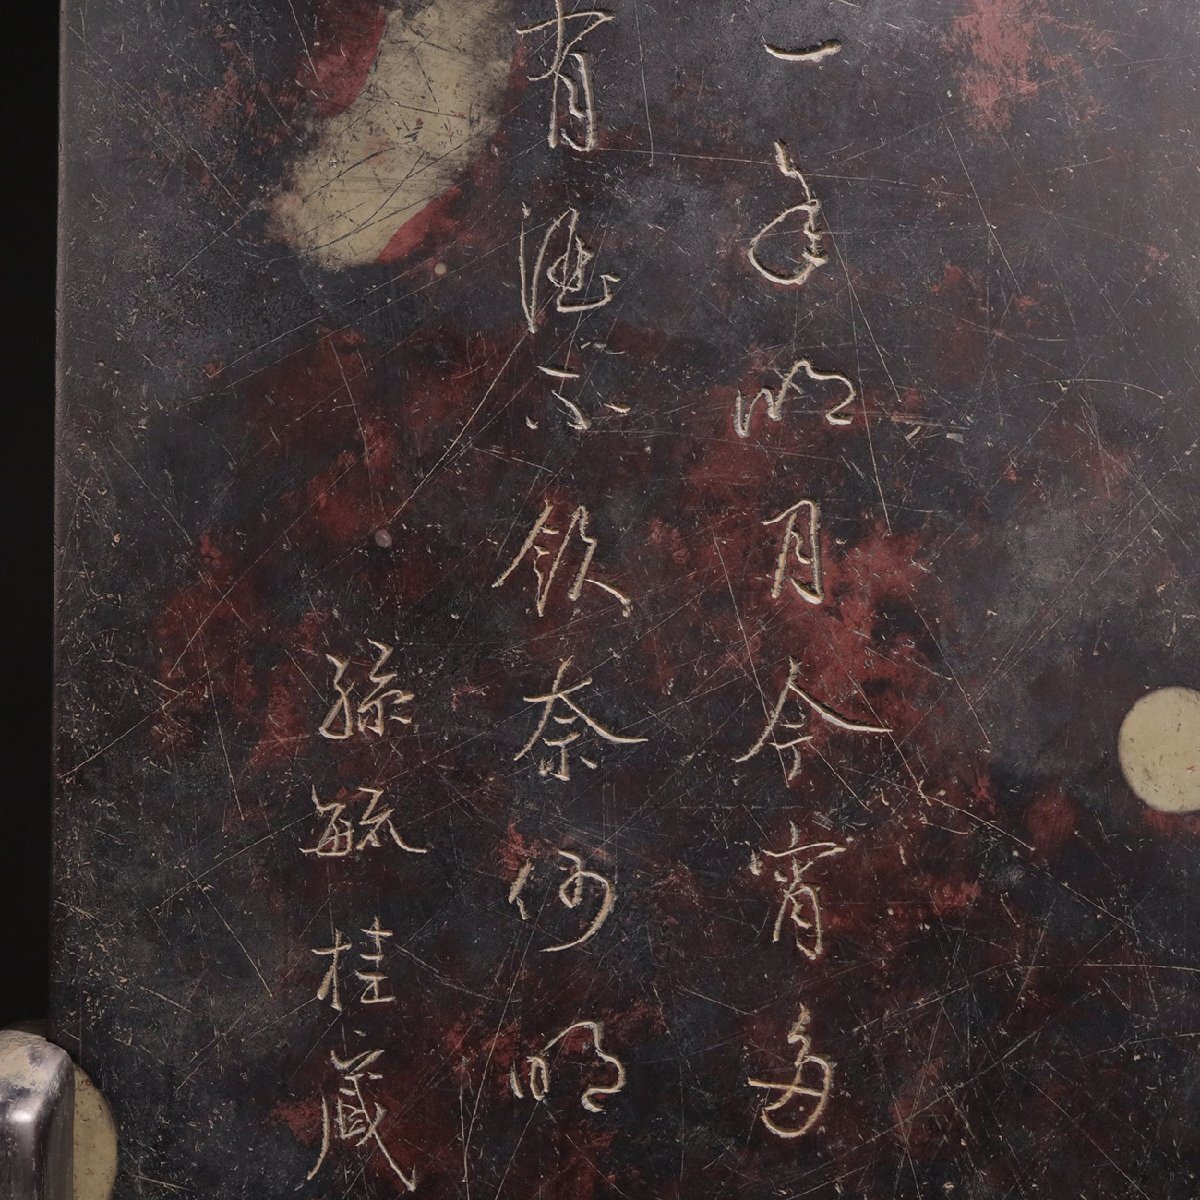 一年明月今宵多
有酒不飲奈何明
孫毓桂藏